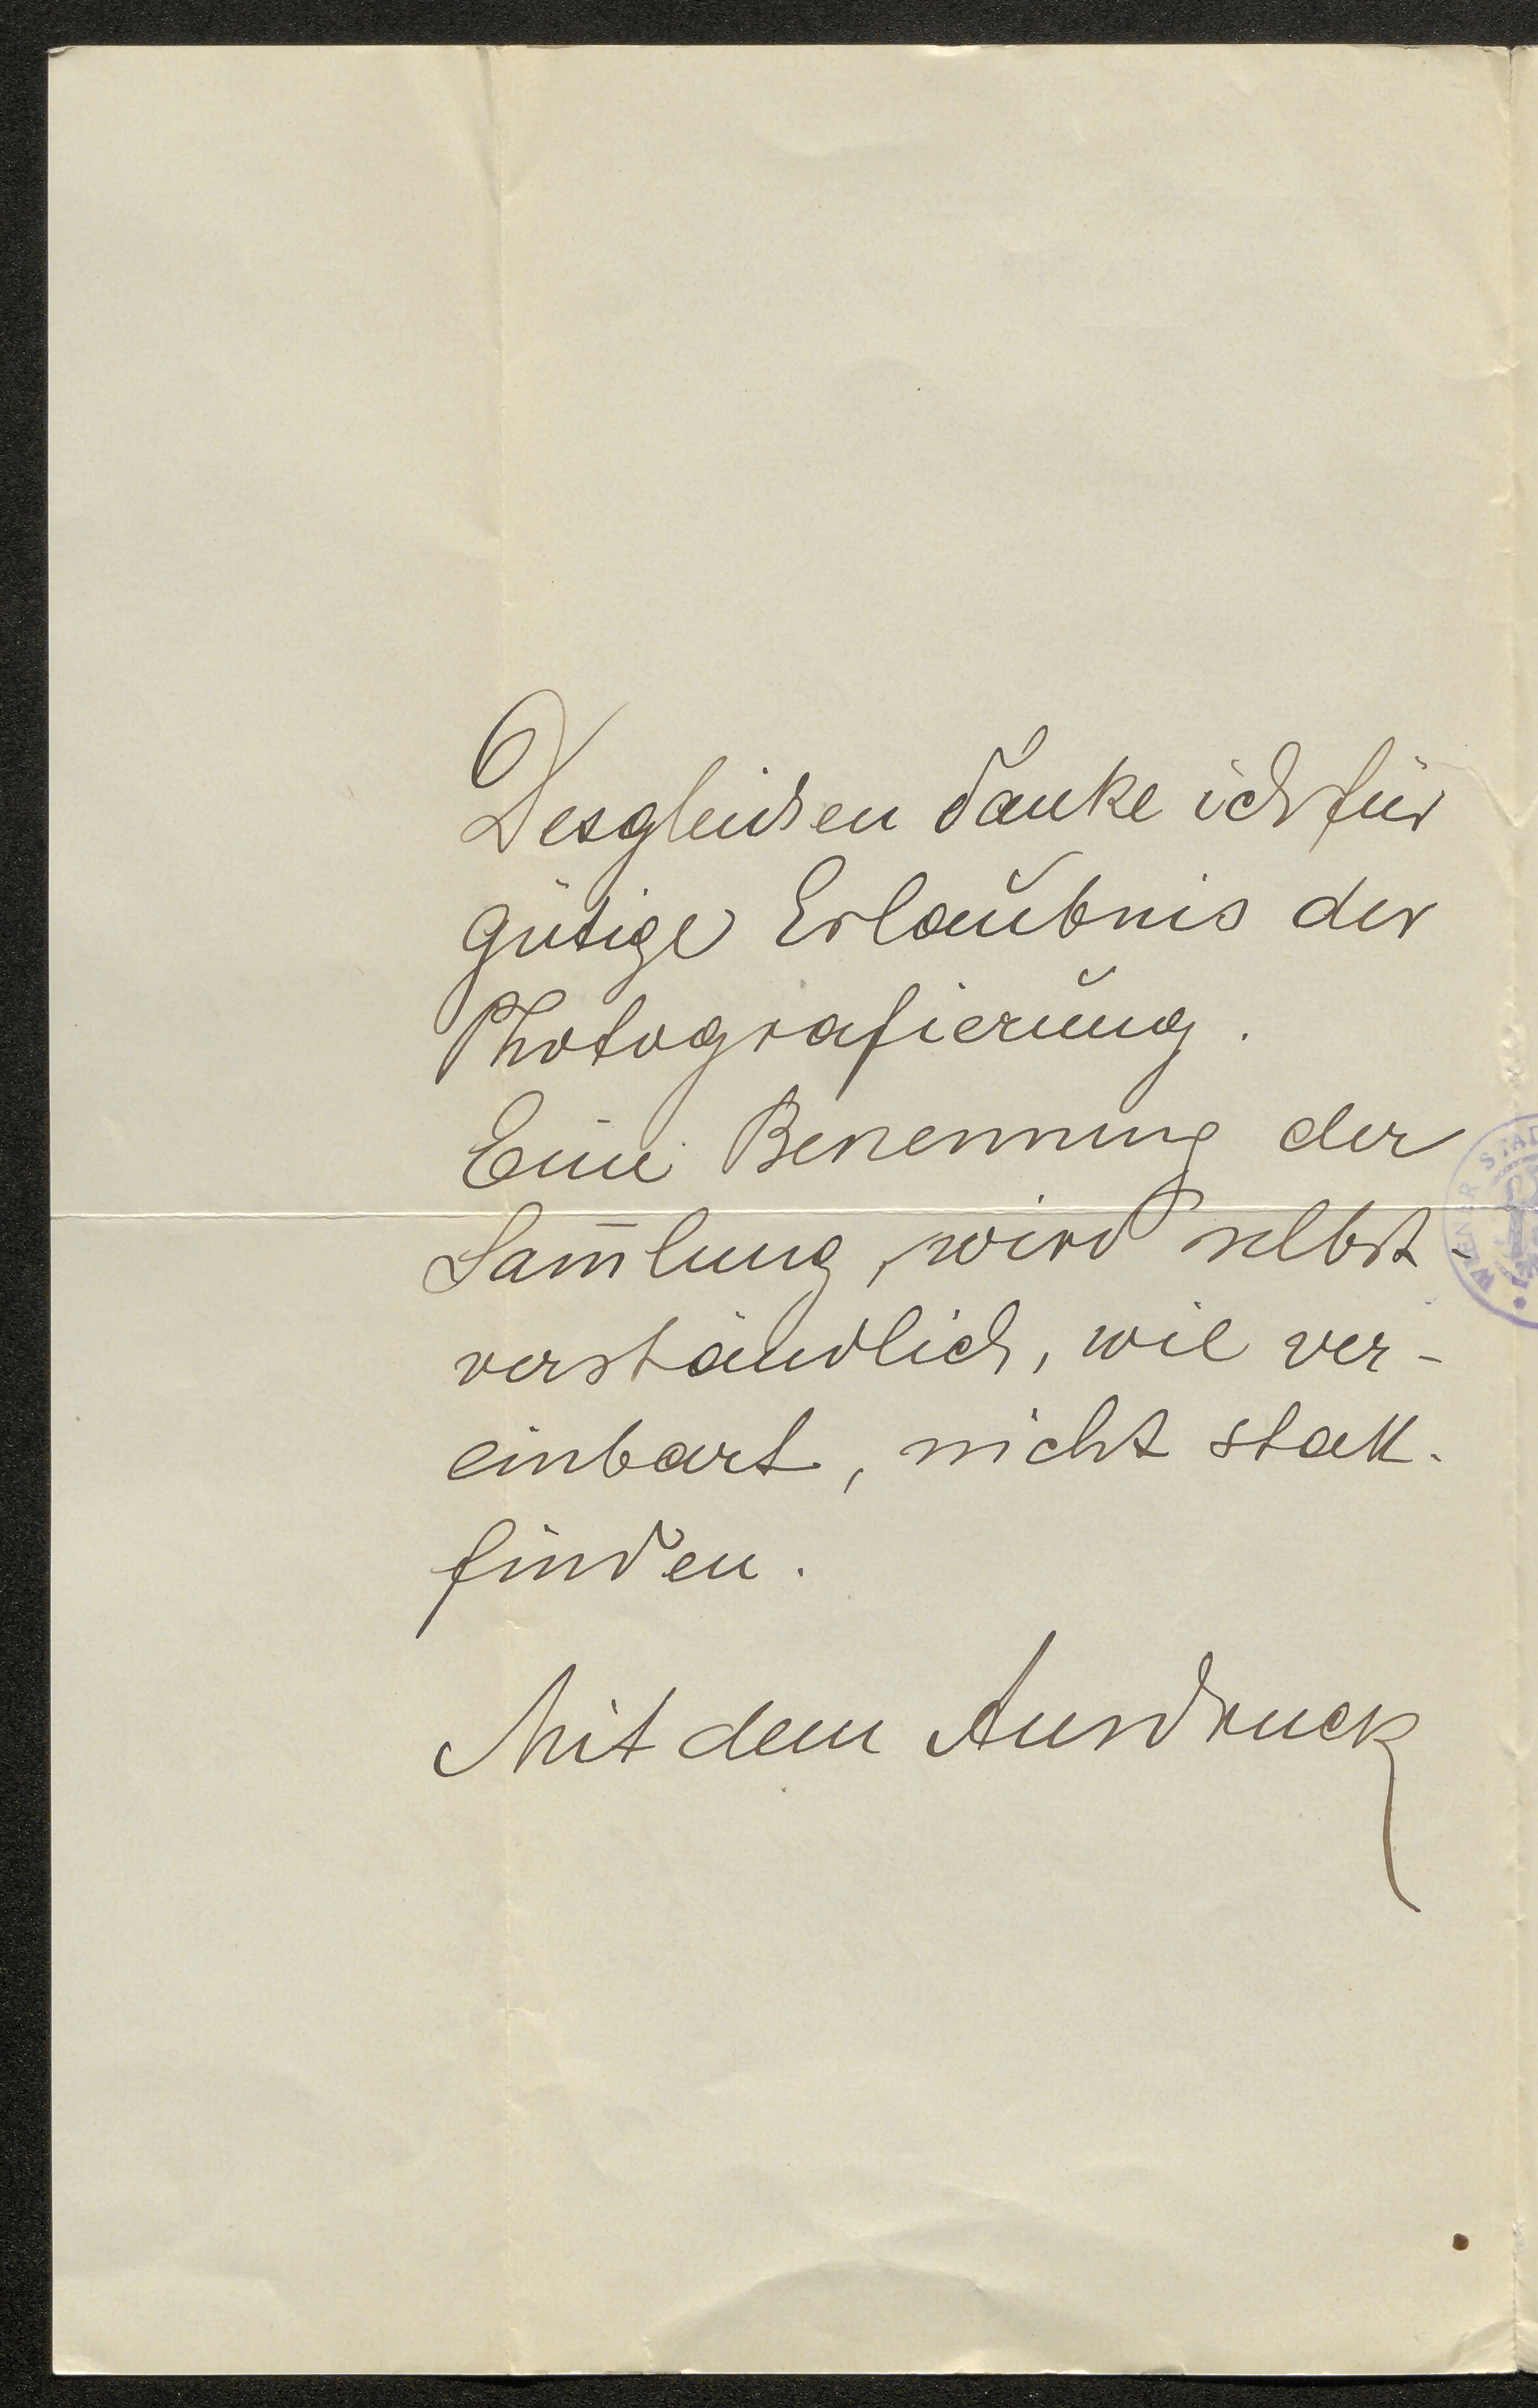 Desgleichen danke ich für
gütige Erlaubnis der
Photografierung.
Eine Benennung der
Sam̅lung, wird selbst-
verständlich, wie ver-
einbart, nicht statt-
finden.
Mit dem Ausdruck
WIENER STAD